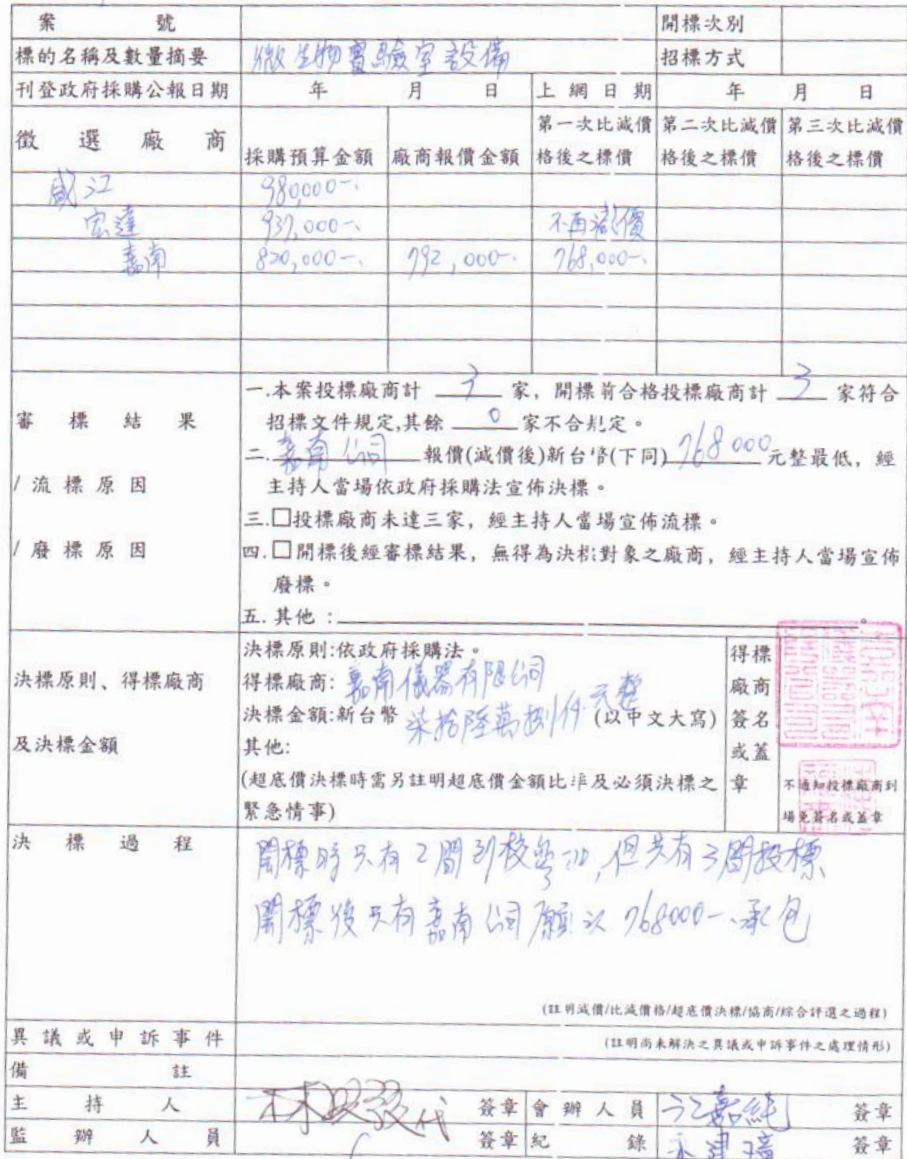 案 號 開標次別
標的名稱及數量摘要 微生物實驗室設備 招標方式
刊登政府採購公報日期 年 月 日 上網日期 年 月 日
徵選廠商 採購預算金額 廠商報價金額 第一次比減價格後之標價 第二次比減價格後之標價 第三次比減價格後之標價
威江 980,000-.
宏達 937,000-. 不再減價
嘉南 820,000-. 792,000-. 768,000-.
審標結果
/流標原因
/廢標原因
一.本案投標廠商計 3 家，開標前合格投標廠商計 3 家符合
招標文件規定,其餘 0 家不合規定。
二.嘉南公司 報價(減價後)新台幣(下同) 768000 元整最低，經
主持人當場依政府採購法宣佈決標。
三.□投標廠商未達三家，經主持人當場宣佈流標。
四.□開標後經審標結果，無得為決標對象之廠商，經主持人當場宣佈
廢標。
五.其他：
決標原則、得標廠商
及決標金額
決標原則:依政府採購法。
得標廠商: 嘉南儀器有限公司
決標金額:新台幣 柒拾陸萬捌仟元整 (以中文大寫)
其他:
(超底價決標時需另註明超底價金額比率及必須決標之
緊急情事)
得標
廠商
簽名
或蓋
章
不通知投標廠商到
場免簽名或蓋章
決標過程
開標時只有2間到校參加,但共有3間投標
開標後只有嘉南公司願以768000-.承包
(註明減價/比減價格/超底價決標/協商/綜合評選之過程)
異議或申訴事件 (註明尚未解決之異議或申訴事件之處理情形)
備註
主持人 代 簽章 會辦人員 簽章
監辦人員 簽章 紀錄 簽章